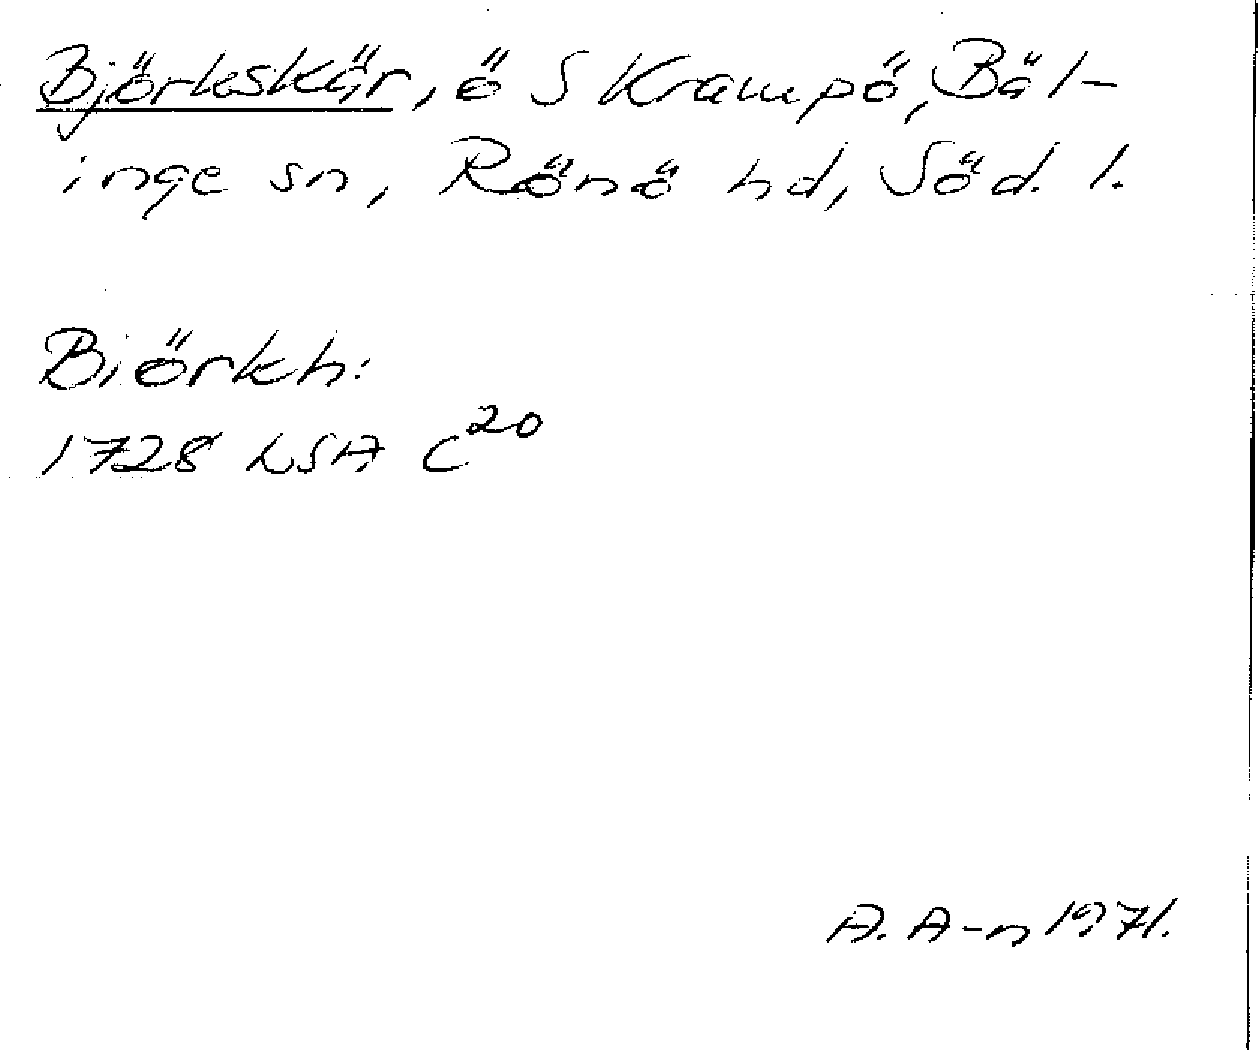 Björkskär, ö S Krampö, Bäl-
inge sn, Rönö hd, Söd. l.
Biörkh:
1728 LSA C20
A. A-n 1971.